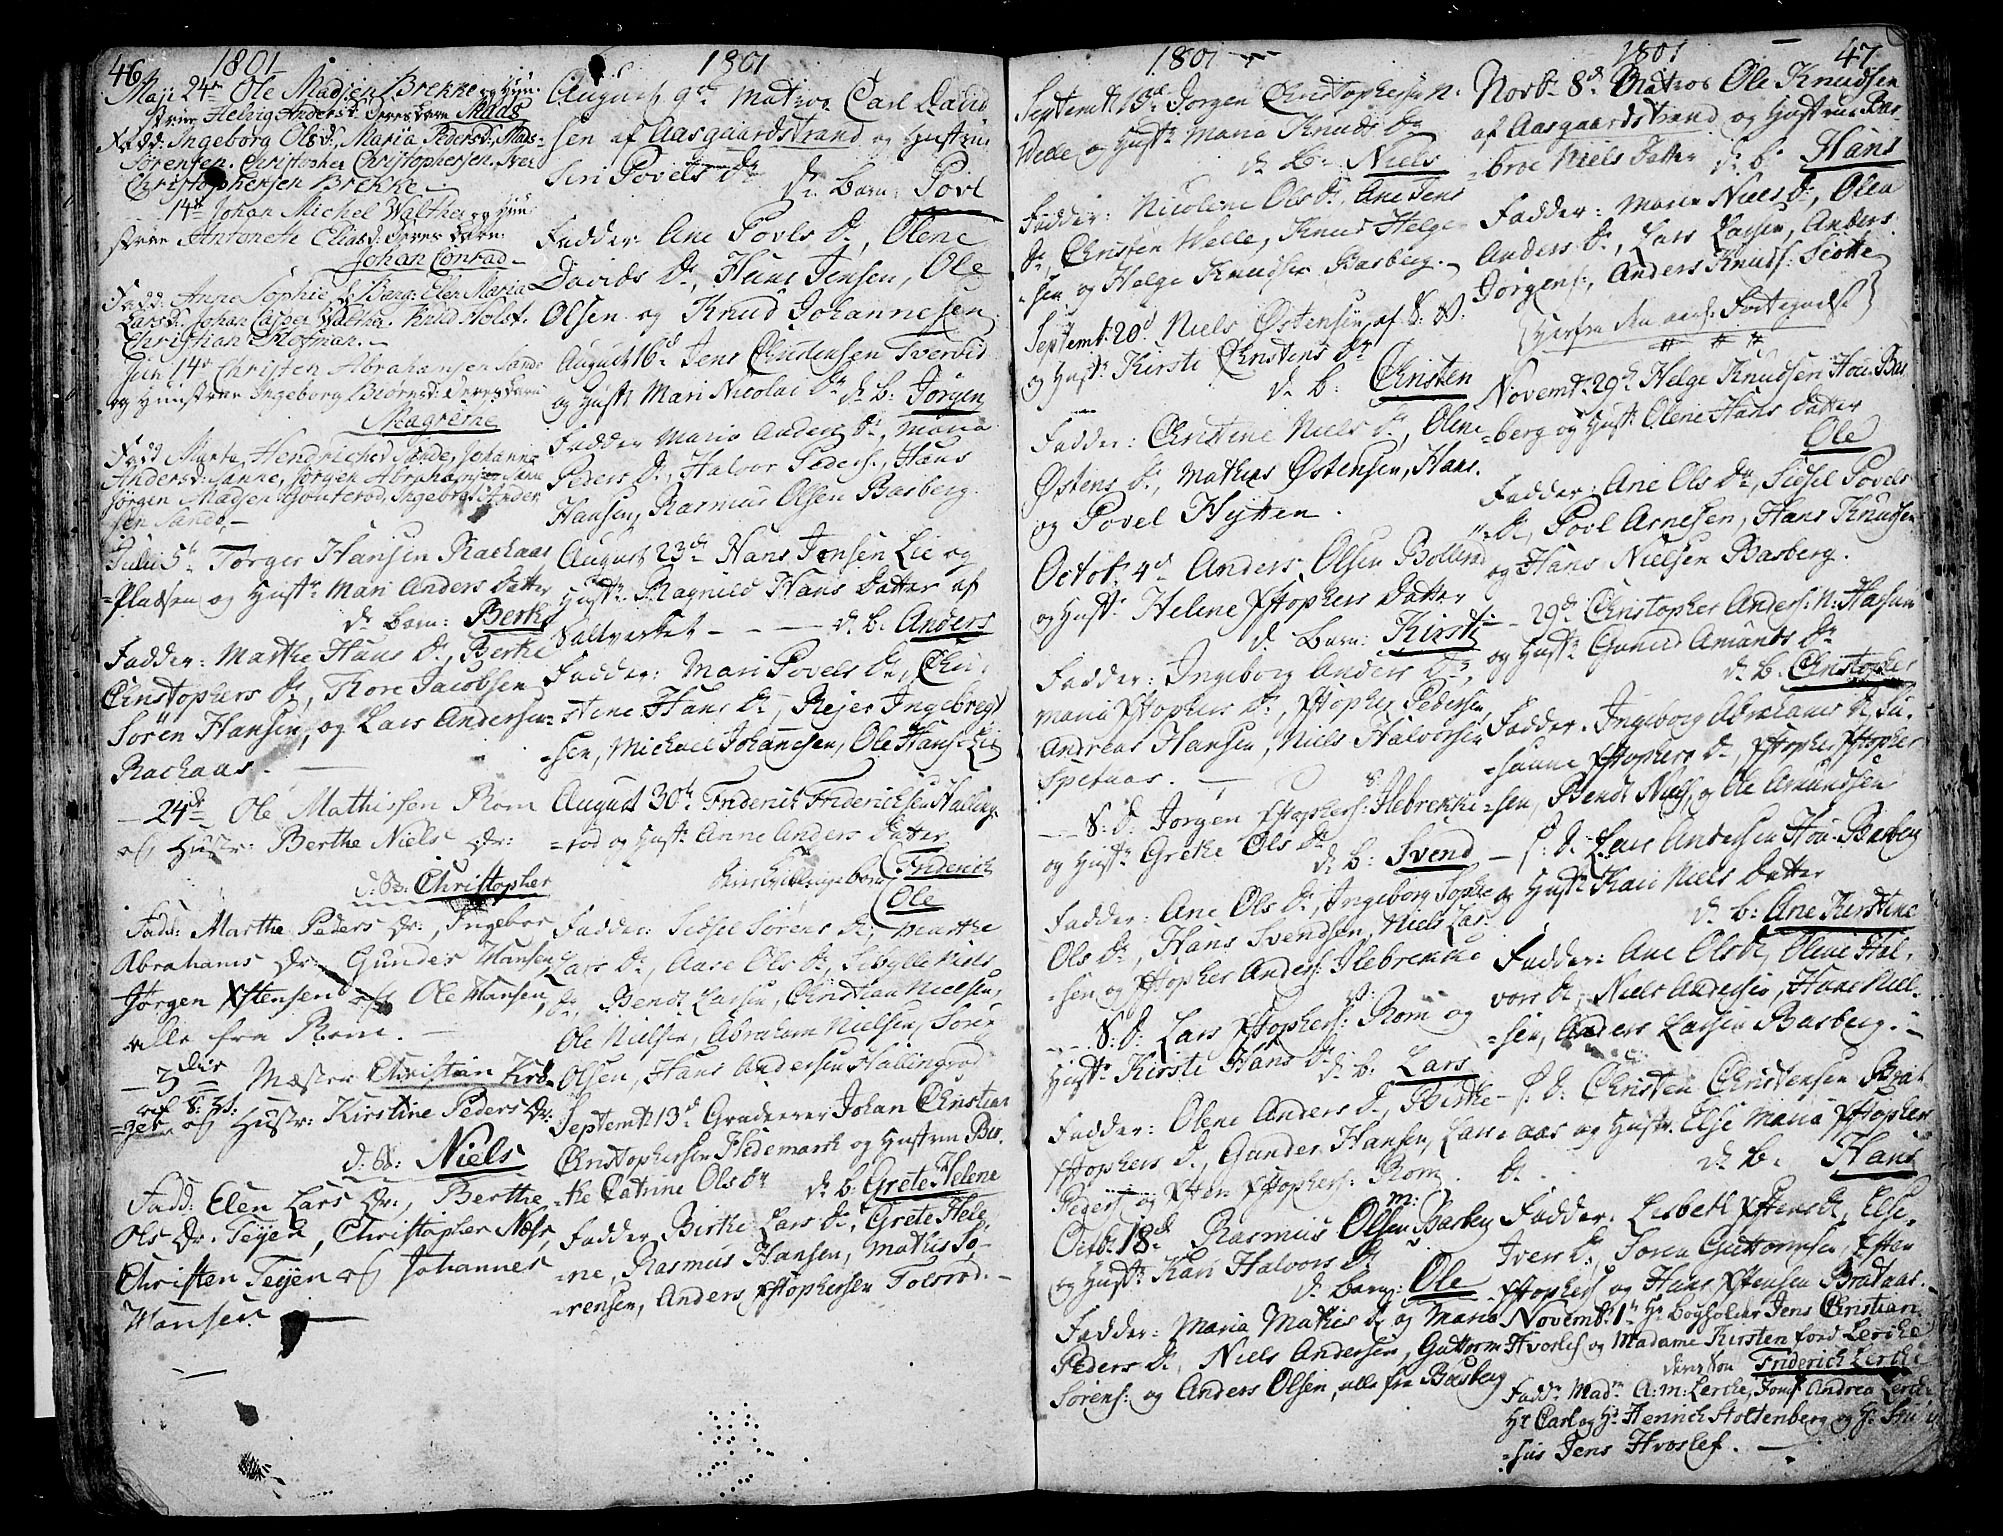 46 1801
Maji 24de Ole Madsen Brekke og Hun-
strue Helvig Andersd. Deres barn Mads
Fadd: Ingeborg Olsd., Maria Pedersd., Mads
Sörensen. Christopher Christophersen. Iver
Christophersen Brekke.
14de Johan Michel Walther og Hun
strue Antonette Eliasd. Deres barn
Johan Conrad
Fadd: Anne Sophie de Barg: Elen Maria
Larsd: Johan Casper Walther. Knud Holst.
Christian Hofman.
14de Christen Abrahamsen Sande
og Hunstrue Ingeborg Biörnsd: Deres barn
Magrethe
Fadd Marte Hendrichsd Sande, Johanne
Andersd: Sanne, Jörgen Abrahamsen Sanne
Jörgen Madsen Gouterod, Ingebrigt Ander
sen Sande.
Julii 5te Torger Hansen Rachaas
=pladsen og Hustr. Mari Anders Datter
d. barn: Berthe
Fadder: Marthe Hans Dr, Berthe
Christophers Dr, Thore Jacobsen
Sören Hansen, og Lars Andersen
Rachaas.
24de Ole Mathissen Rom
og Hustr: Berthe Niels Dr:
d: B: Christopher
Fadd: Marthe Peders Dr:, Ingebor
Abrahams Dr, Gunder Hansen,
Jörgen Xstensen og Ole Hansen,
alle fra Rom.
3die Mester Christian Kirb-
af S: W:
=get og Hustr: Kirstine Peders Dr:
d: B: Niels
Fadd: Elen Lars Dr:, Berthe
Ols Dr. Teyen, Christopher Næss,
Christen Teyen og Johannes
Hansen.
1801
August 9de Matros Carl David
sen af Aasgaardstrand og Hustrue
Siri Povels Dr
D. barn: Povl
Fadder: Ane Povls Dr, Olene
Davids Dr, Hans Jensen, Ole
Olsen og Knud Johannesen
August 16de Jens Christensen Tverved
og Hustr Mari Nicolai Dr d. b: Jörgen
Fadder Maria Anders Dr, Maria
Peders Dr, Halvor Peders., Hans
Hansen, Rasmus Olsen Basberg.
August 23de Hans Jonsen Lie og
Hustr: Magnild Hans Datter af
Valleverket d. b. Anders
Fadder: Mari Povels Dr, Chri-
stine Hans Dr, Rejer Ingebregt
=sen, Michael Johannesen, Ole Hans: Lie
August 30te Friderich Friderichsen Halling-
=rod og Hustr. Anne Anders Datter
Friderich
Ole
Fadder: Sidsel Sörens Dr, Marthe
Lars Dr, Aase Ols Dr, Sibylle Niels
Dr, Bendt Larsen, Christian Nielsen,
Ole Nielsen, Abraham Nielsen, Sören
Olsen, Hans Andersen Hallingrod
Septemb: 13de Graderer Johan Christian
Christophersen Hedemark og Hustrue Bir-
=the Catrine Ols Dr d. b. Grete Helene
Fadder Birthe Lars Dr, Grete Hele
=ne, Rasmus Hansen, Mathis Sö-
=rensen, Anders Xstophersen Tolsrod.
1801
Septemb: 13de Jörgen Christophersen N.
Welle og Hustr. Maria Knuds Dr
d. b: Niels
Fadder: Nicoline Ols Dr, Ane Jens
Dr, Christen Welle, Knud Helge
=sen og Helge Knudsen Basberg.
Septemb: 20de Niels Östensen af S: W.
og Hustr. Kirsti Christens Dr
d. b: Christen
Fadder: Christine Niels Dr, Olene
Östens Dr, Mathias Östensen, Hans
og Povel Hytten.
Octob: 4de Anders Olsen Bollerud
og Hustr. Helene Xstophers Datter
d. barn: Kirsti
Fadder: Ingeborg Anders Dr,
Maria Xstophers Dr, Xstopher Pedersen
Andreas Hansen, Niels Halvorsen
Spetaas.
S: D: Jörgen Xstophers: Ilebrekke
og Hustr Grethe Ols Dr
d. b: Svend
Fadder: Ane Ols Dr, Ingeborg Sophie
Ols Dr, Hans Svendsen, Niels Lar-
=sen og Xstopher Anders: Ilebrekke
S: D: Lars Xstophers: Rom og
Hustr. Kirsti Hans Dr d. b: Lars
Fadder: Olene Anders Dr, Birthe
Xstophers Dr, Gunder Hansen, Lars
Peders: og Xsten Xstophers: Rom.
Octb: 18de Rasmus Olsen m: Basberg
og Hustr. Kari Halvors Dr
d. barn: Ole
Fadder: Maria Mathis Dr og Maria
Peders Dr, Niels Andersen, Guttorm
Sörens: og Anders Olsen, alle fra Basberg
1801 47
Novb: 8de Matros Ole Knudsen
af Aasgaardstrand og Hustrue Bar
=broe Niels Datter d. b: Hans
Fadder: Maria Niels Dr, Olea
Anders Dr, Lars Larsen, Anders
Jörgens:, Anders Knuds: Scotte
Novemb: 29de Helge Knudsen Hou-Bas
=berg og Hustr: Olene Hans Datter
Ole
Fadder: Ane Ols Dr, Sidsel Povels
Dr, Povl Arnesen, Hans Knudsen
og Hans Nielsen Basberg.
29de Christopher Anders: N: Hassum
og Hustr Gunild Amunds Dr
d. b: Christopher
Fadder: Ingeborg Abrahams Dr, Su-
=sanne Xstophers Dr, Xstopher Xstopher
=sen, Bendt Niels, og Ole Amundsen
s. d: Lars Andersen Hou-Basberg
og Hustr Kari Niels Datter
d. b: Ane Kirstine
Fadder: Ane Ols Dr, Olene Hal-
vors Dr, Niels Andersen, Hans Niel-
=sen, Anders Larsen Basberg.
s. d: Christen Christensen Brat
=aas og Hustr. Else Maria Xstophers
Dr. d. b. Hans
Fadder: Lisbeth Xstens Dr, Else
Ivers Dr, Sören Guttormsen, Xsten
Xstophers og Hans Xstensen Brataas.
Novemb: 1te Hr. Bogholder Jens Christian
Hvoslef og Madame Kirsten född Lerche
deres Sön Friderich Lerche
Fadd: Madm A: M: Lerche, Jomf. Andrea Lerche
Hr Carl og Hr Henrich Stoltenberg og Hr
=sus Jens Hvoslef.